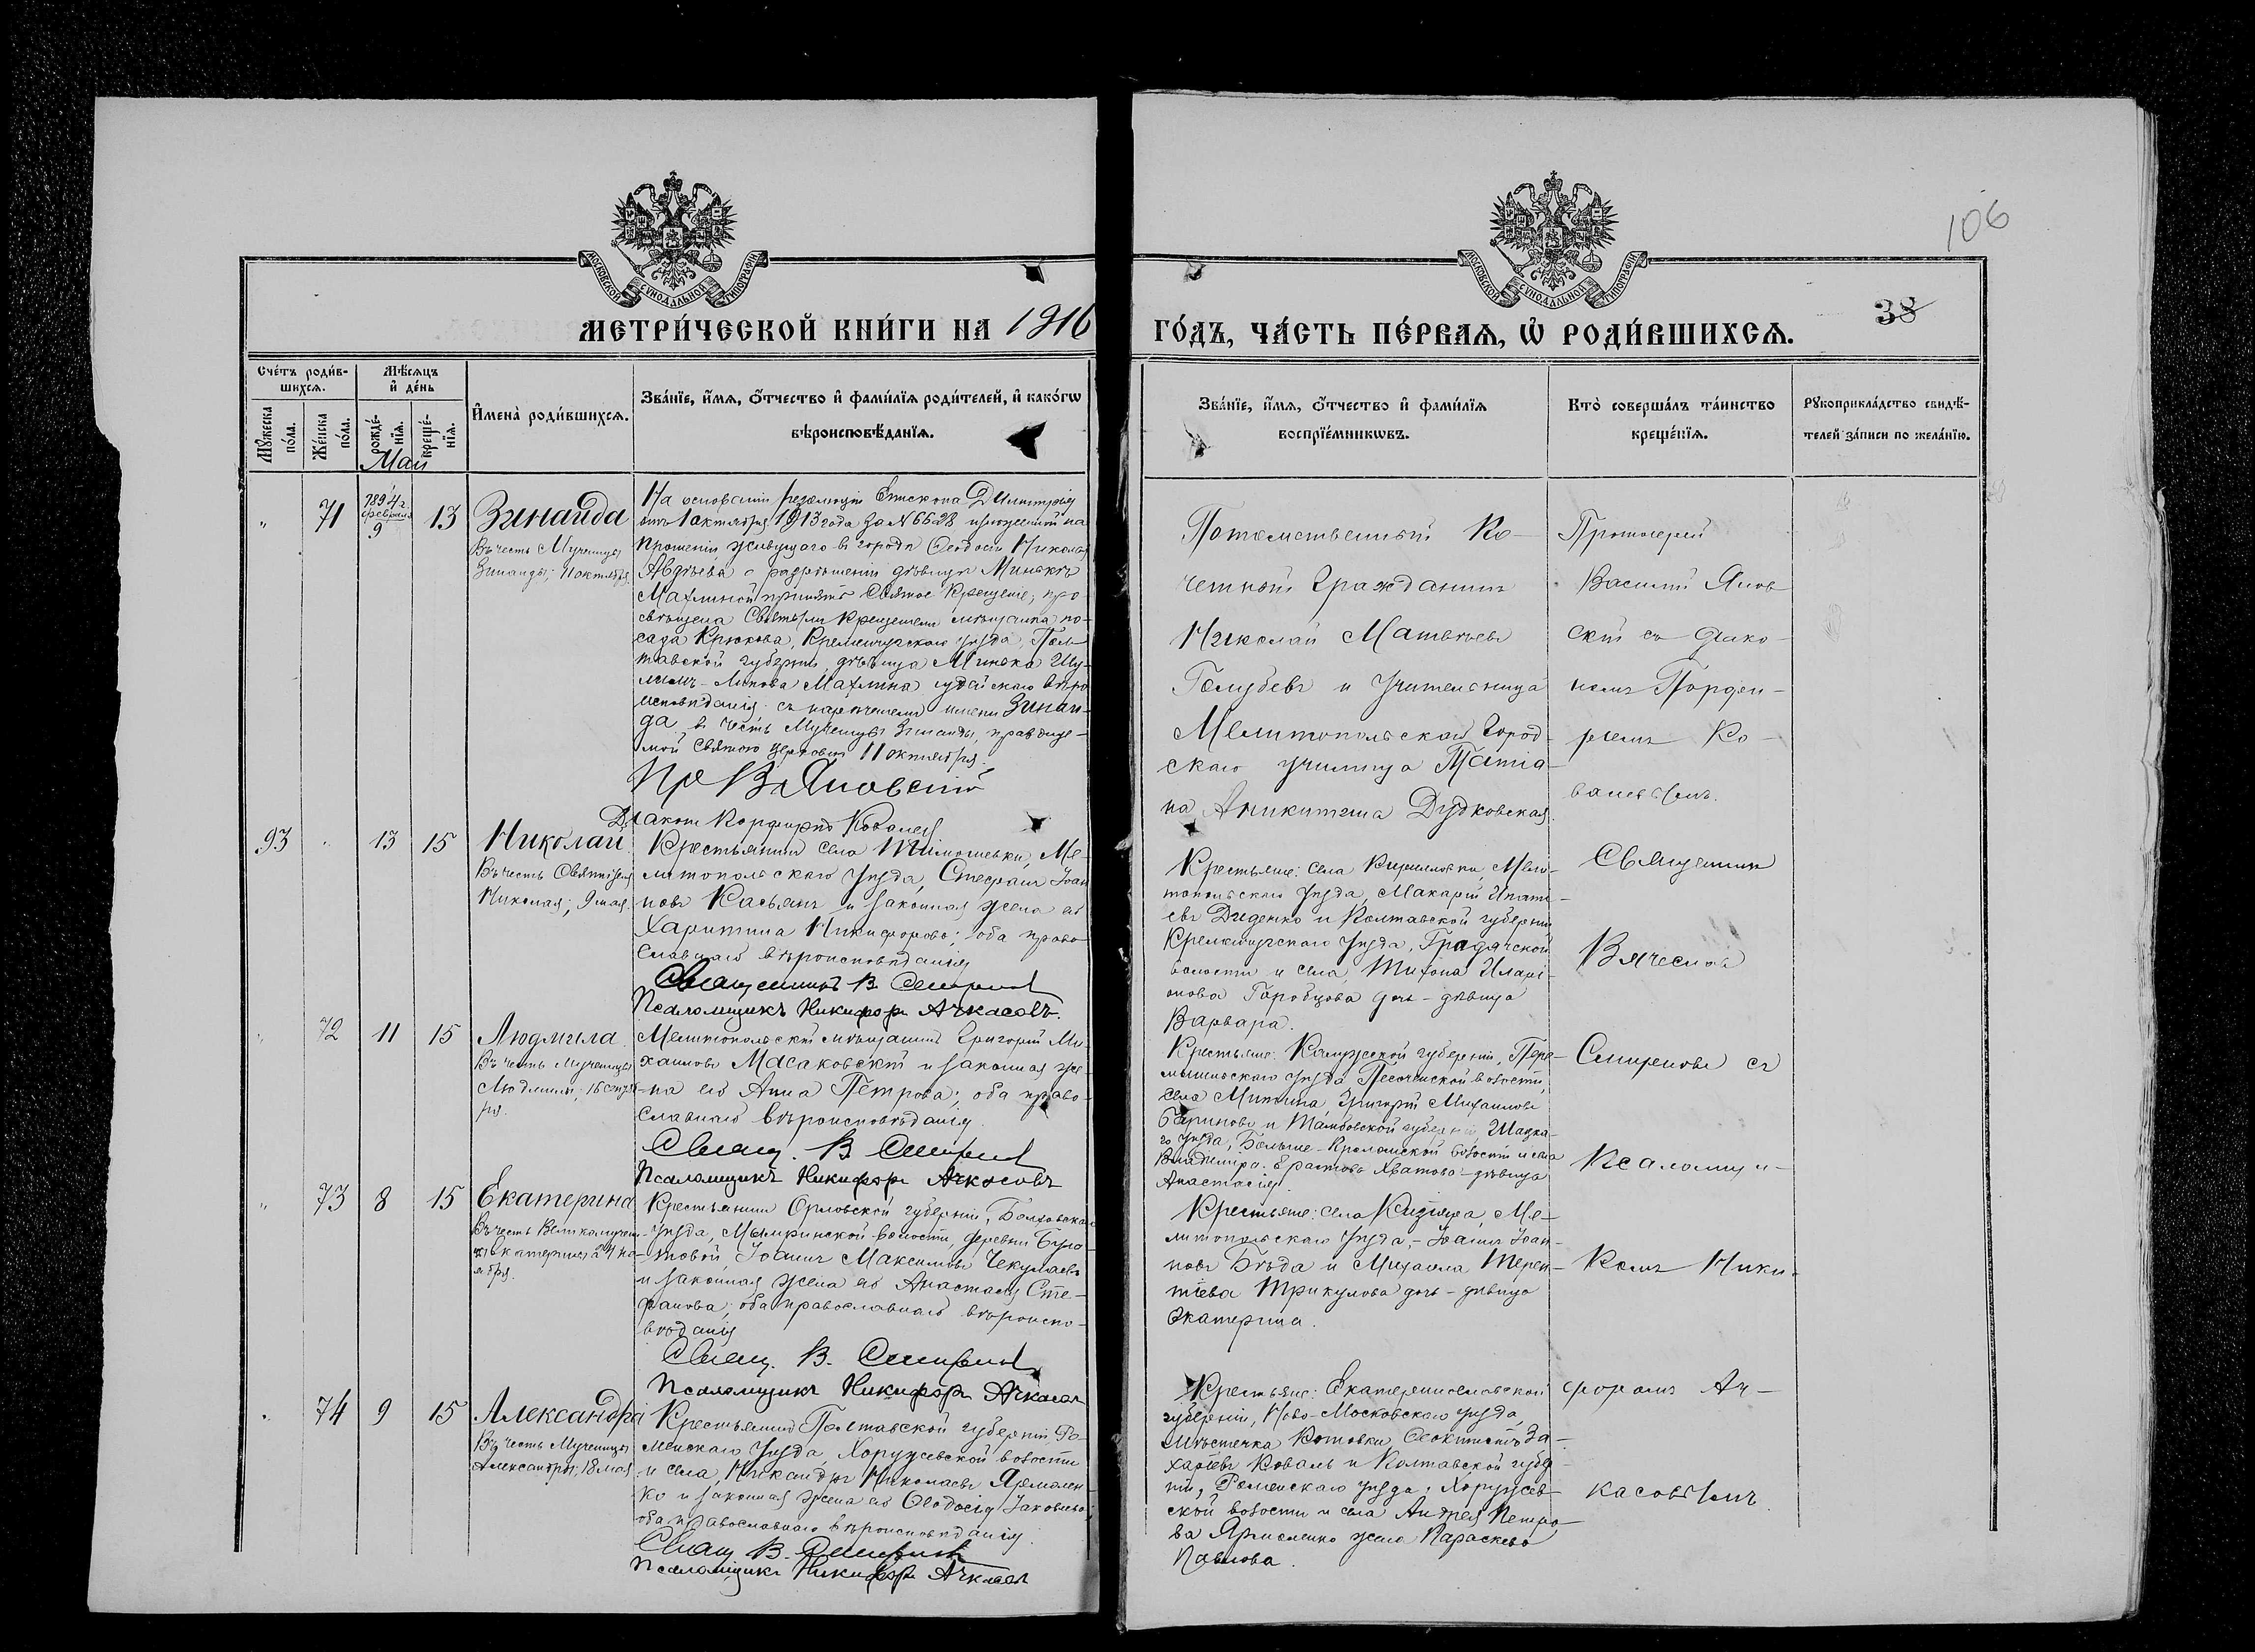 106
МОСКОВСКОЙ СѴНОДАЛЬНОЙ ТИПОГРАФІИ
МОСКОВСКОЙ СѴНОДАЛЬНОЙ ТИПОГРАФІИ
МЕТРИ́ЧЕСКОЙ КНИ́ГИ НА 1916
ГО́ДЪ, ЧА́СТЬ ПЕ́РВАЯ, Ѡ҆ РОДИ́ВШИХСЯ.
38
Сче́тъ роди́в-
шихся.
Мѣ́сяцъ
и҆ де́нь
Мꙋ́жеска по́ла.
Же́нска по́ла.
рожде́-нїя.
креще́-нїя.
И҆мена̀ роди́вшихся.
Зва́нїе, и҆́мя, ѻ҆́тчество и҆ фами́лїя роди́телей, и҆ како́гѡ
вѣроисповѣ́данїя.
Зва́нїе, и҆́мя, ѻ҆́тчество и҆ фами́лїя
воспрїе́мникѡвъ.
Кто̀ соверша́лъ та́инство
креще́нїя.
Рꙋкоприкла́дство свидѣ́-
телей за́писи по жела́нїю.
Май
71
1894 г.
февраля
9
13
Зинаида
Въ честь Мученицы
Зинаиды, 11 октября.
На основаніи резолюціи Епископа Димитрія
отъ 1 октября 1913 года за № 6628 изложенной на
прошеніи живущаго в городѣ Ѳеодосіи Николая
Авдѣева о разрѣшеніи дѣвицѣ
принять Святое Крещеніе, про-
свѣщена Святымъ Крещеніемъ мѣщанка по-
сада Крюкова, Кременчугскаго уѣзда, Пол-
тавской губерніи, дѣвица
іудейскаго вѣро-
исповѣданія съ нареченіемъ имени Зинаи-
да, въ честь Мученицы Зинаиды, празднуе-
мой Святою церковью 11 октября.
Пр В. Яновскій
Діаконъ Порфирій Ковалев
Потомственный По-
четный Гражданинъ
Николай Матвѣевъ
Голубевъ и Учительница
Мелитопольскаго Город-
скаго училища Татіа-
на Аникитина Дудковская.
Протоіерей
Василій Янов-
скій съ Діако-
номъ Порфи-
ріемъ Ко-
валевымъ.
93
13
15
Николай
Въ честь Святителя
Николая, 9 мая.
Крестьянинъ села Тимошевки, Ме-
литопольскаго уѣзда, Стефанъ Іоан-
новъ Касьянъ и законная жена его
Харитина Никифорова; оба право-
славнаго вѣроисповѣданія
Священникъ В. Смирнов
Псаломщикъ Никифоръ Ачкасовъ.
Крестьяне: села Кирилловки, Мели-
топольскаго уѣзда, Макарій Ипаті-
евъ Диденко и Полтавской губерніи
Кременчугскаго уѣзда, Градижской
волости и села, Тихона Иларі-
онова Горобцова дочь - дѣвица
Варвара.
Священник
Вячеслав
72
11
15
Людмила
Въ честь Мученицы
Людмилы, 16 сентяб-
ря.
Мелитопольскій мѣщанинъ Григорій Ми-
хаиловъ Масаковскій и законная же-
на его Анна Петрова; оба право-
славнаго вѣроисповѣданія.
Свящ. В. Смирнов
Псаломщикъ Никифоръ Ачкасовъ
Крестьяне: Калужской губерніи, Пере-
мышльскаго уѣзда
села Митина, Григорій Михаиловъ
и Тамбовской губерніи, Шацка-
го уѣзда, волости и села
Владиміра Ерастова Хватова - дѣвица
Анастасія.
Смирновъ съ
Псаломщи-
73
8
15
Екатерина
Въ честь Великомучен-
Екатерины 24 но-
ября.
Крестьянинъ Орловской губерніи, Болховскаго
уѣзда, Мымринской волости, деревни Було-
товой, Іоаннъ Максимовъ Чекулаевъ
и законная жена его Анастасія Сте-
фанова; оба православнаго вѣроиспо-
вѣданія
Свящ. В. Смирнов
Псаломщикъ Никифоръ Ачкасов
Крестьяне: села Кизіяра, Ме-
литопольскаго уѣзда, - Іоаннъ Іоан-
новъ Бѣда и Михаила Терен-
тіева Трикулова дочь - дѣвица
Екатерина.
комъ Ники-
74
9
15
Александра
Въ честь Мученицы
Александры, 18 мая
Крестьянинъ Полтавской губерніи, Ро-
менскаго уѣзда, Хоружевской волости
и села Никандръ Николаевъ Ярмолен-
ко и законная жена его Ѳеодосія Іаковлева
оба православнаго вѣроисповѣданія.
Свящ В. Смирнов
Псаломщикъ Никифоръ Ачкасов
Крестьяне: Екатеринославской
губерніи, Ново-Московскаго уѣзда,
мѣстечка Котовки Ѳеоктистъ За-
харіевъ Коваль и Полтавской губер-
ніи, Роменскаго уѣзда, Хоружев-
ской волости и села Андрея Петро-
ва Ярмоленко жена Параскева
Павлова.
форомъ Ач-
касовымъ.